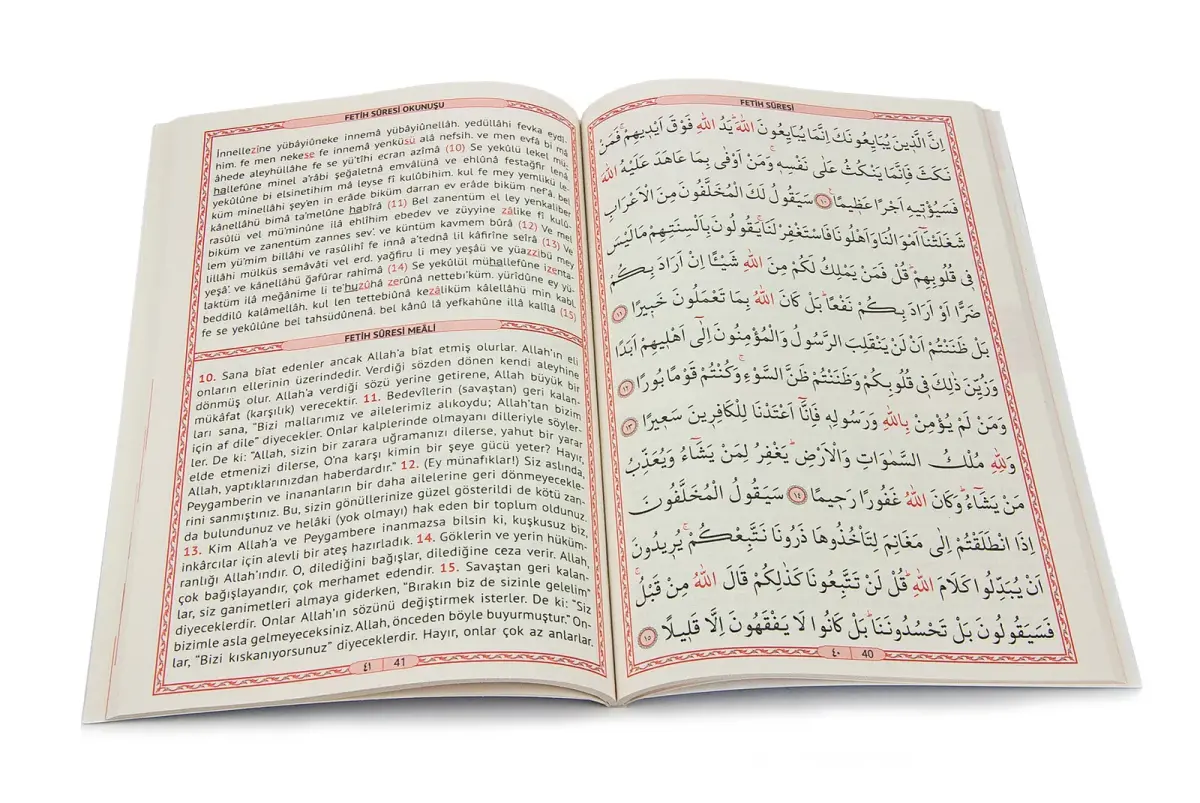 FETİH SÛRESİ
اِنَّ الَّذ۪ينَ يُبَايِعُونَكَ اِنَّمَا يُبَايِعُونَ اللّٰهَۜ يَدُ اللّٰهِ فَوْقَ اَيْد۪يهِمْۚ فَمَنْ
نَكَثَ فَاِنَّمَا يَنْكُثُ عَلٰى نَفْسِه۪ۚ وَمَنْ اَوْفٰى بِمَا عَاهَدَ عَلَيْهُ اللّٰهَ
فَسَيُؤْت۪يهِ اَجْرًا عَظ۪يمًا۟ ﴿١٠﴾ سَيَقُولُ لَكَ الْمُخَلَّفُونَ مِنَ الْاَعْرَابِ
شَغَلَتْنَٓا اَمْوَالُنَا وَاَهْلُونَا فَاسْتَغْفِرْ لَنَاۚ يَقُولُونَ بِاَلْسِنَتِهِمْ مَا لَيْسَ
ف۪ي قُلُوبِهِمْۜ قُلْ فَمَنْ يَمْلِكُ لَكُمْ مِنَ اللّٰهِ شَيْـًٔا اِنْ اَرَادَ بِكُمْ
ضَرًّا اَوْ اَرَادَ بِكُمْ نَفْعًاۜ بَلْ كَانَ اللّٰهُ بِمَا تَعْمَلُونَ خَب۪يرًا ﴿١١﴾
بَلْ ظَنَنْتُمْ اَنْ لَنْ يَنْقَلِبَ الرَّسُولُ وَالْمُؤْمِنُونَ اِلٰٓى اَهْل۪يهِمْ اَبَدًا
وَزُيِّنَ ذٰلِكَ ف۪ي قُلُوبِكُمْ وَظَنَنْتُمْ ظَنَّ السَّوْءِۚ وَكُنْتُمْ قَوْمًا بُورًا ﴿١٢﴾
وَمَنْ لَمْ يُؤْمِنْ بِاللّٰهِ وَرَسُولِه۪ فَاِنَّٓا اَعْتَدْنَا لِلْكَافِر۪ينَ سَع۪يرًا ﴿١٣﴾
وَلِلّٰهِ مُلْكُ السَّمٰوَاتِ وَالْاَرْضِۜ يَغْفِرُ لِمَنْ يَشَٓاءُ وَيُعَذِّبُ
مَنْ يَشَٓاءُۜ وَكَانَ اللّٰهُ غَفُورًا رَح۪يمًا ﴿١٤﴾ سَيَقُولُ الْمُخَلَّفُونَ
اِذَا انْطَلَقْتُمْ اِلٰى مَغَانِمَ لِتَأْخُذُوهَا ذَرُونَا نَتَّبِعْكُمْۚ يُر۪يدُونَ
اَنْ يُبَدِّلُوا كَلَامَ اللّٰهِۜ قُلْ لَنْ تَتَّبِعُونَا كَذٰلِكُمْ قَالَ اللّٰهُ مِنْ قَبْلُۚ
فَسَيَقُولُونَ بَلْ تَحْسُدُونَنَاۜ بَلْ كَانُوا لَا يَفْقَهُونَ اِلَّا قَل۪يلًا ﴿١٥﴾
٤٠ 40
FETİH SÛRESİ OKUNUŞU
İnnellezine yübâyiûneke innemâ yübâyiûnellâh. yedüllâhi fevka eydî
him. fe men nekese fe innemâ yenküsü alâ nefsih. ve men evfâ bi mâ
âhede aleyhüllâhe fe se yü'tîhi ecran azîmâ (10) Se yekûlü lekel mü-
hallefûne minel a'râbi şeğaletnâ emvâlünâ ve ehlûnâ festağfir lenâ
yekûlûne bi elsinetihim mâ leyse fî kulûbihim. kul fe mey yemlikü le-
küm minellâhi şey'en in erâde biküm darran ev erâde biküm nef'â. bel
kânellâhü bimâ ta'melûne habîrâ (11) Bel zanentüm el ley yenkaliber
rasûlü vel mü'minûne ilâ ehlîhim ebedev ve züyyine zâlike fî kulû-
biküm ve zanentüm zannes sev'. ve küntüm kavmem bûrâ (12) Ve mel
lem yü'mim billâhi ve rasûlihî fe innâ a'tednâ lil kâfirîne seîrâ (13) Ve
lillâhi mülküs semâvâti vel erd. yağfiru li mey yeşâü ve yüazzibü mey
yeşâ'. ve kânellâhü ğafûrar rahîmâ (14) Se yekûlül mühallefûne izenta-
laktüm ilâ meğânime li te'huzûhâ zerûnâ nettebi'küm. yürîdûne ey yü-
beddilû kalâmellâh. kul len tettebiûnâ kezâliküm kâlellâhü min kabl.
fe se yekûlûne bel tahsüdûnenâ. bel kânû lâ yefkahûne illâ kalîlâ (15)
FETİH SÛRESİ MEÂLİ
10. Sana bîat edenler ancak Allah'a bîat etmiş olurlar. Allah'ın eli
onların ellerinin üzerindedir. Verdiği sözden dönen kendi aleyhine
dönmüş olur. Allah'a verdiği sözü yerine getirene, Allah büyük bir
mükâfat (karşılık) verecektir. 11. Bedevîlerin (savaştan) geri kalan-
ları sana, "Bizi mallarımız ve ailelerimiz alıkoydu; Allah'tan bizim
için af dile" diyecekler. Onlar kalplerinde olmayanı dilleriyle söyler-
ler. De ki: "Allah, sizin bir zarara uğramanızı dilerse, yahut bir yarar
elde etmenizi dilerse, O'na karşı kimin bir şeye gücü yeter? Hayır,
Allah, yaptıklarınızdan haberdardır." 12. (Ey münafıklar!) Siz aslında,
Peygamberin ve inananların bir daha ailelerine geri dönmeyecekle-
rini sanmıştınız. Bu, sizin gönüllerinize güzel gösterildi de kötü zan-
da bulundunuz ve helâki (yok olmayı) hak eden bir toplum oldunuz.
13. Kim Allah'a ve Peygambere inanmazsa bilsin ki, kuşkusuz biz,
inkârcılar için alevli bir ateş hazırladık. 14. Göklerin ve yerin hüküm-
ranlığı Allah'ındır. O, dilediğini bağışlar, dilediğine ceza verir. Allah,
çok bağışlayandır, çok merhamet edendir. 15. Savaştan geri kalan-
lar, siz ganimetleri almaya giderken, "Bırakın biz de sizinle gelelim"
diyeceklerdir. Onlar Allah'ın sözünü değiştirmek isterler. De ki: "Siz
bizimle asla gelmeyeceksiniz. Allah, önceden böyle buyurmuştur." On-
lar, "Bizi kıskanıyorsunuz" diyeceklerdir. Hayır, onlar çok az anlarlar.
٤١ 41